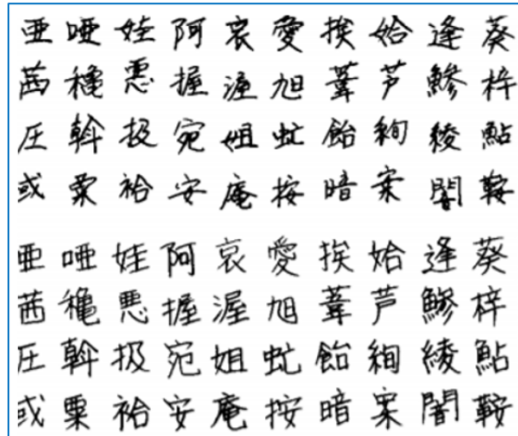 亜 唖 娃 阿 哀 愛 挨 姶 逢 葵
茜 穐 悪 握 渥 旭 葦 芦 鯵 梓
圧 斡 扱 宛 姐 虻 飴 絢 綾 鮎
或 粟 袷 安 庵 按 暗 案 闇 鞍
亜 唖 娃 阿 哀 愛 挨 姶 逢 葵
茜 穐 悪 握 渥 旭 葦 芦 鯵 梓
圧 斡 扱 宛 姐 虻 飴 絢 綾 鮎
或 粟 袷 安 庵 按 暗 案 闇 鞍